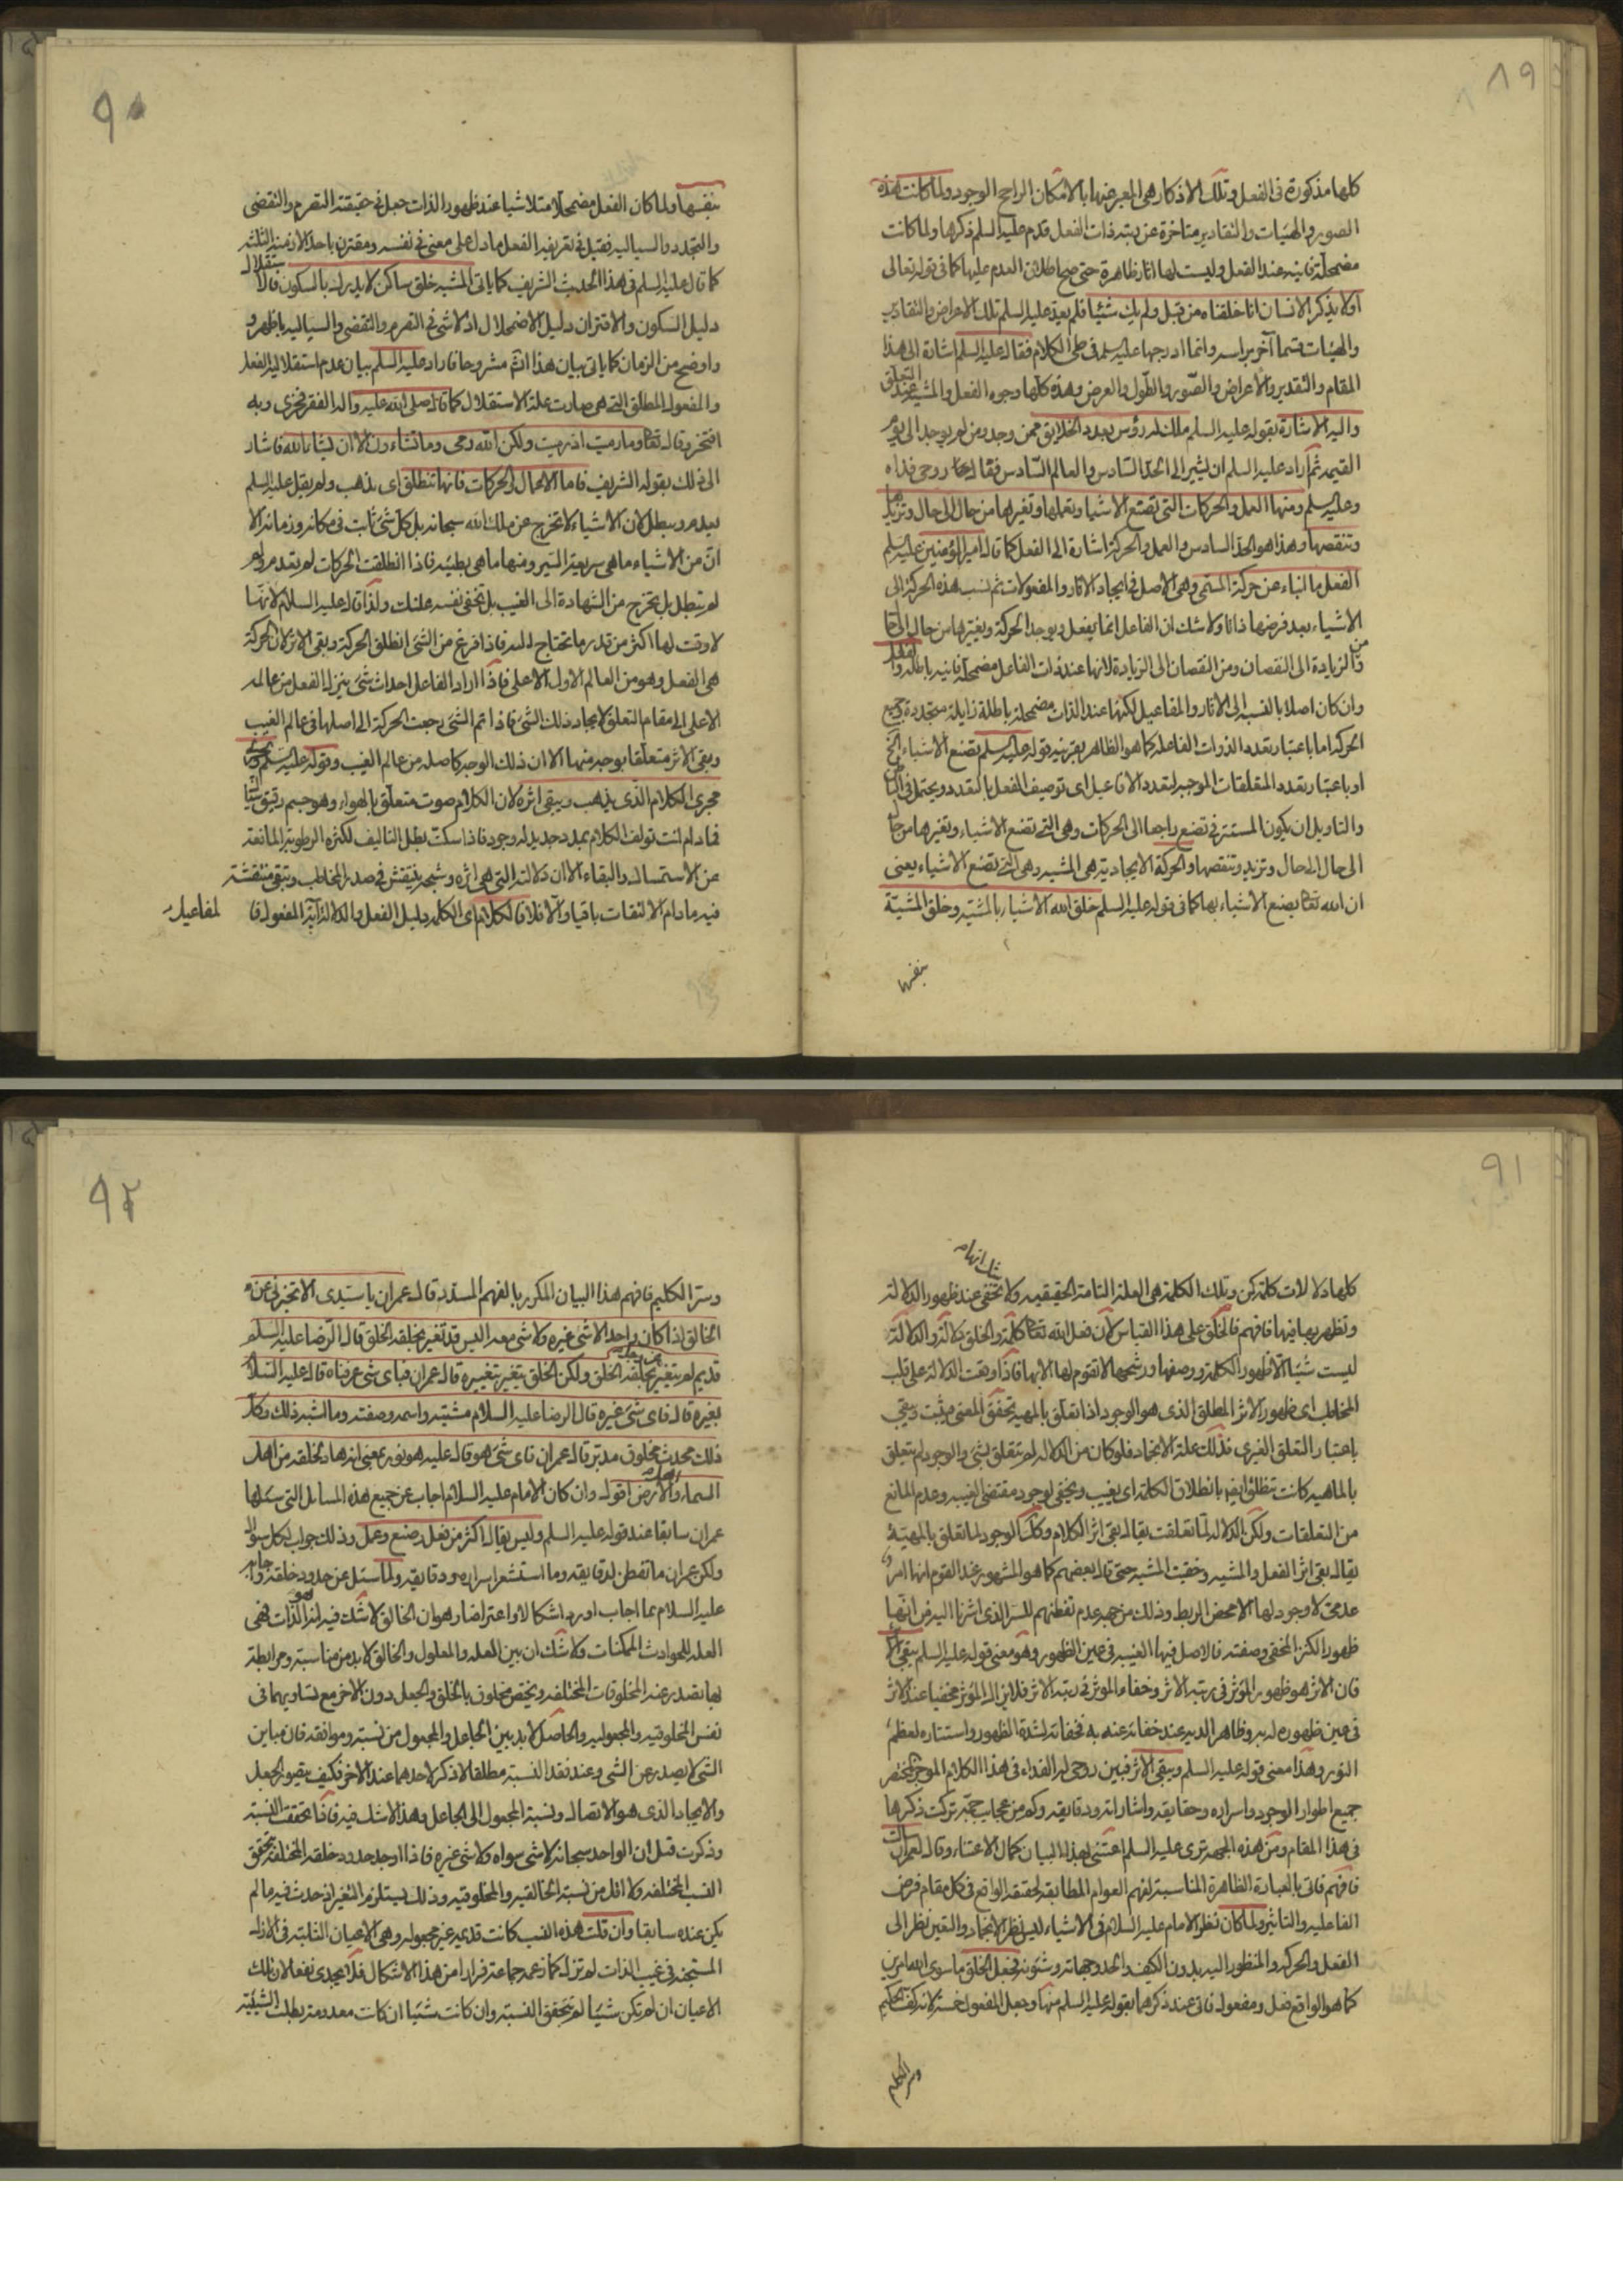 ٨٩
كلها مذكورة فى الفعل وتلك الاذكار هى المعبر عنها بالامكان الراجح الوجود ولما كانت هذه
الصور والهيئات والتقادير متاخرة عن رتبة ذات الفعل قدم عليه السلم ذكرها ولما كانت
مضمحلة فانية عند الفعل وليست لها اثار ظاهرة حتى صح اطلاق العدم عليها كما فى قوله تعالى
اولا يذكر الانسان انا خلقناه من قبل ولم يك شيئا فلم يعد عليه السلم تلك الاعراض والتقادير
والهيئات قسما آخر براسه وانما ادرجها عليه السلم فى طى الكلام فقال عليه السلم اشارة الى هذا
المقام والتقدير والاعراض والصور والطول والعرض وهذه كلها وجوه الفعل والمشية عند التعلق
واليه الاشارة بقوله عليه السلم ملك له رؤس بعدد الخلايق ممن وجد ومن لم يوجد الى يوم
القيمة ثم اراد عليه السلم ان يشير الى الحد السادس والعالم السادس فقال روحى فداه
وعليه السلم ومنها العمل والحركات التى تصنع الاشياء وتعملها وتغيرها من حال الى حال وتزيدها
وتنقصها وهذا هو الحد السادس والعمل والحركة اشارة الى الفعل كما قال امير المؤمنين عليه السلم
الفعل ما انباء عن حركة المسمى وهى الاصل فى ايجاد الاثار والمفعولات ثم نسب هذه الحركة الى
الاشياء بعد فرضها ذاتا ولا شك ان الفاعل انما يفعل ويوجد الحركة ويغيرها من حال الى حال
من الزيادة الى النقصان ومن النقصان الى الزيادة لانها عند ذات الفاعل مضمحلة فانية باطلة
وان كان اصلا بالنسبة الى الاثار والمفاعيل لكنها عند الذات مضمحلة باطلة زايلة متجددة وجمع
الحركة اما باعتبار تعدد الذوات الفاعلة كما هو الظاهر بقرينة قوله عليه السلم تصنع الاشياء الخ
او باعتبار تعدد المتعلقات الموجبة لتعدد الافاعيل اى توصيف الفعل بالتعدد ويحتمل فى الباطن
والتاويل ان يكون المستتر فى تصنع راجعا الى الحركات وهى التى تصنع الاشياء وتغيرها من حال
الى حال الى حال وتزيد وتنقصها والحركة الايجادية هى المشية وهى التى تصنع الاشياء يعنى
ان الله تعالى يصنع الاشياء بها كما فى قوله عليه السلم خلق الله الاشياء بالمشية وخلق المشية
بنفسها
٩٠
بنفسها ولما كان الفعل مضمحلا متلاشيا عند ظهور الذات جعل فى حقيقته التصرم والتقضى
والتجدد والسيالية فقيل فى تعريفه الفعل ما دل على معنى فى نفسه ومقترن باحد الازمنة الثلثة
كما قال عليه السلم فى هذا الحديث الشريف كما ياتى المشية خلق ساكن لا يدرك بالسكون فالاستقلال
دليل السكون والاقتران دليل الاضمحلال اذ لا شى فى التصرم والتقضى والسيالية باظهر و
واوضح من الزمان كما ياتى بيان هذا انشاء مشروحا فاراد عليه السلم بيان عدم استقلالية الفعل
والمفعول المطلق التى هى صارت علة الاستقلال كما قال صلى الله عليه واله الفقر فخرى وبه
افتخر وقال تعالى وما رميت اذ رميت ولكن الله رمى وما تشاءون الا ان يشاء الله فاشار
الى ذلك بقوله الشريف فاما الاعمال والحركات فانها تنطلق اى يذهب ولم يقل عليه السلم
يعدم ويبطل لان الاشياء لا تخرج عن ملك الله سبحانه بل كل شى ثابت فى مكانه وزمانه الا
ان من الاشياء ما هى سريعة السير ومنها ما هى بطيئة فاذا انطلقت الحركات لم يعدم ولم
لم تبطل بل تخرج من الشهادة الى الغيب بل تخفى نفسه عنك ولذا قال عليه السلام لانها
لا وقت لها اكثر من قدر ما تحتاج اليه فاذا فرغ من الشى انطلق الحركة وبقى الاثر لان الحركة
هى الفعل وهو من العالم الاول الاعلى فاذا اراد الفاعل احداث شى ينزل الفعل من عالمه
الاعلى الى مقام التعلق لايجاد ذلك الشى فاذا تم الشى رجعت الحركة الى اصلها فى عالم الغيب
وبقى الاثر متعلقا بوجه منها الا ان ذلك الوجه كاصله من عالم الغيب وقوله عليه السلم ويجرى
مجرى الكلام الذى يذهب ويبقى اثره لان الكلام صوت متعلق بالهواء وهو جسم رقيق
فما دام انت تولف الكلام بمدد جديد له وجود فاذا سكت بطل التاليف لكثرة الرطوبة المانعة
عن الاستمساك والبقاء الا ان دلالته التى هى اثره وشبحه ينتقش فى صدر المخاطب وتبقى منتقشة
فيه ما دام الالتفات باقيا والا فلا فالكلام اى الكلمة دليل الفعل والدلالة آية المفعول فالمفاعيل
٩١
كلها دلالات كلمة كن وتلك الكلمة هى العلة التامة الحقيقية ولا تخفى عند ظهور الدلالة
وتظهر بها فيها فافهم فالخلق على هذا القياس لان فعل الله تعالى كلمة والخلق دلالة والدلالة
ليست شيئا الا ظهور الكلمة ووصفها ورشحها لا تقوم لها الا بها فاذا وقعت الدلالة على قلب
المخاطب اى ظهور الاثر المطلق الذى هو الوجود اذا تعلق بالمهية تحقق المعنى ويثبت ويبقى
باعتبار التعلق الغيرى فذلك علة الاتحاد فلو كان من الدلالة لم يتعلق بشى والوجود لم يتعلق
بالماهية كانت تنطلق ايضا بانطلاق الكلمة اى يغيب ويخفى لوجود مقتضى الغيبة وعدم المانع
من التعلقات ولكن الدلالة لما تعلقت يقال بقى اثر الكلام وكذا الوجود لما تعلق بالمهية
يقال بقى اثر الفعل والمشية وخفيت المشية حتى قال بعضهم كما هو المشهور عند القوم انها امر
عدمى لا وجود لها الا محض الربط وذلك من جهة عدم تفطنهم للسر الذى اشرنا اليه من انها
ظهور الكنز المخفى وصفته فالاصل فيها الغيبة فى عين الظهور وهو معنى قوله عليه السلم يبقى الاثر
فان الاثر هو ظهور المؤثر فى رتبة الاثر وخفاء المؤثر فى رتبة الاثر فلا يزال المؤثر مخفيا عند الاثر
فى عين ظهوره له به وظاهر الديه عند خفائه عنه به فخفائه لشدة الظهور واستتاره لعظم
النور وهذا معنى قوله عليه السلم ويبقى الاثر فبين روحى له الفداء فى هذا الكلام الموجز المختصر
جميع اطوار الوجود واسراره وحقايقه واشاراته ودقايقه وكم من عجايب جمة تركت ذكرها
فى هذا المقام ومن هذه الجهة ترى عليه السلم اعتنى بهذا البيان كمال الاعتناء وقال لعمران
فافهم فاتى بالعبارة الظاهرة المناسبة لفهم العوام المطابقة لحقيقة الواقع فى كل مقام فرض
الفاعلية والتاثير ولما كان نظر الامام عليه السلام فى الاشياء ليس نظر الاتحاد والتعين نظر الى
الفعل والحركة والمنظور اليه بدون الكيف والحد وجهاته وشئونه فجعل الخلق ما سوى الله امرين
كما هو الواقع فعل ومفعول فاتى عند ذكرهما بقوله عليه السلم منها وجعل المفعول خمسة لانه كف الحكيم
وسر الكليم
٩٢
وسر الكليم فافهم هذا البيان المكرر بالفهم المسدد قال عمران يا سيدى الا تخبرنى عن
الخالق اذا كان واحدا لا شى غيره ولا شى معه اليس قد تغير بخلقه الخلق قال الرضا عليه السلم
قديم لم يتغير عز وجل بخلقه الخلق ولكن الخلق يتغير بتغييره قال عمران فباى شى عرفناه قال عليه السلام
بغيره قال فاى شى غيره قال الرضا عليه السلام مشيته واسمه وصفته وما اشبه ذلك وكل
ذلك محدث مخلوق مدبر قال عمران فاى شى هو قال عليه هو نور بمعنى انه هاد لخلقه من اهل
السماء واهل الارض اقول وان كان الامام عليه السلام اجاب عن جميع هذه المسايل التى سئلها
عمران سابقا عند قوله عليه السلم وليس يقال اكثر من فعل وصنع وعمل وذلك جواب لكل سؤال
ولكن عمران ما تفطن لدقايقه وما استشعر اسراره ودقايقه ولما سئل عن حدود خلقه واجابه
عليه السلام بما اجاب اورد اشكالا واعتراضا وهو ان الخالق لا شك فيه انه هو الذات فهى
العلة للحوادث الممكنات ولا شك ان بين العلة والمعلول والخالق لا بد من مناسبة ومرابطة
لها تصدر عنه المخلوقات المختلفة ويختص مخلوق بالخلق والجعل دون الاخر مع تساويهما فى
نفس المخلوقية والمجعولية والحاصل لا بد بين الجاعل والمجعول من نسبة وموافقة فان مباين
الشى لا يصدر عن الشى وعند فقد النسبة مطلقا لا ذكر لاحدهما عند الاخر فكيف يتصور الجعل
والايجاد الذى هو الاتصال ونسبة المجعول الى الجاعل وهذا لا شك فيه فاذا تحققت النسبة
وذكرت قبل ان الواحد سبحانه لا شى سواه ولا شى غيره فاذا اوجد حدود خلقه المختلفة تحقق
النسب المختلفة ولا اقل من نسبة الخالقية والمخلوقية وذلك يستلزم التغير اذ حدث فيه ما لم
يكن عنده سابقا وان قلت هذه النسب كانت قديمة غير مجعولة وهى الاعيان الثابتة فى الازل
المستجنة فى غيب الذات لم تزل كما زعمه جماعة فرارا من هذا الاشكال فلا يجدى نفعا لان تلك
الاعيان ان لم تكن شيئا لم تتحقق النسبة وان كانت شيئا ان كانت معدومة بطلت الشيئية